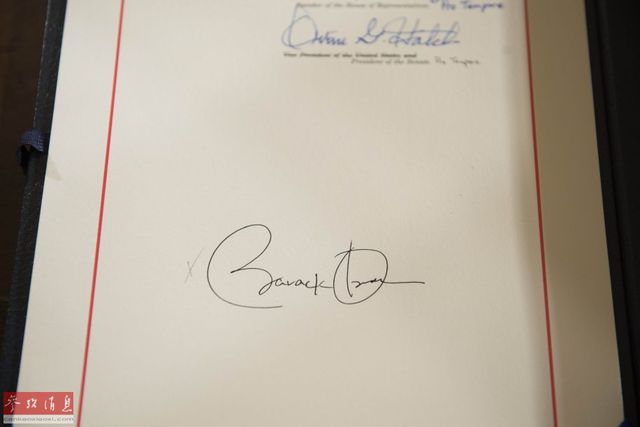 Speaker of the House of Representatives Pro Tempore
Orrin G. Hatch
Vice President of the United States and
President of the Senate Pro Tempore
x
Barack Obama
参考消息
cankaoxiaoxi.com